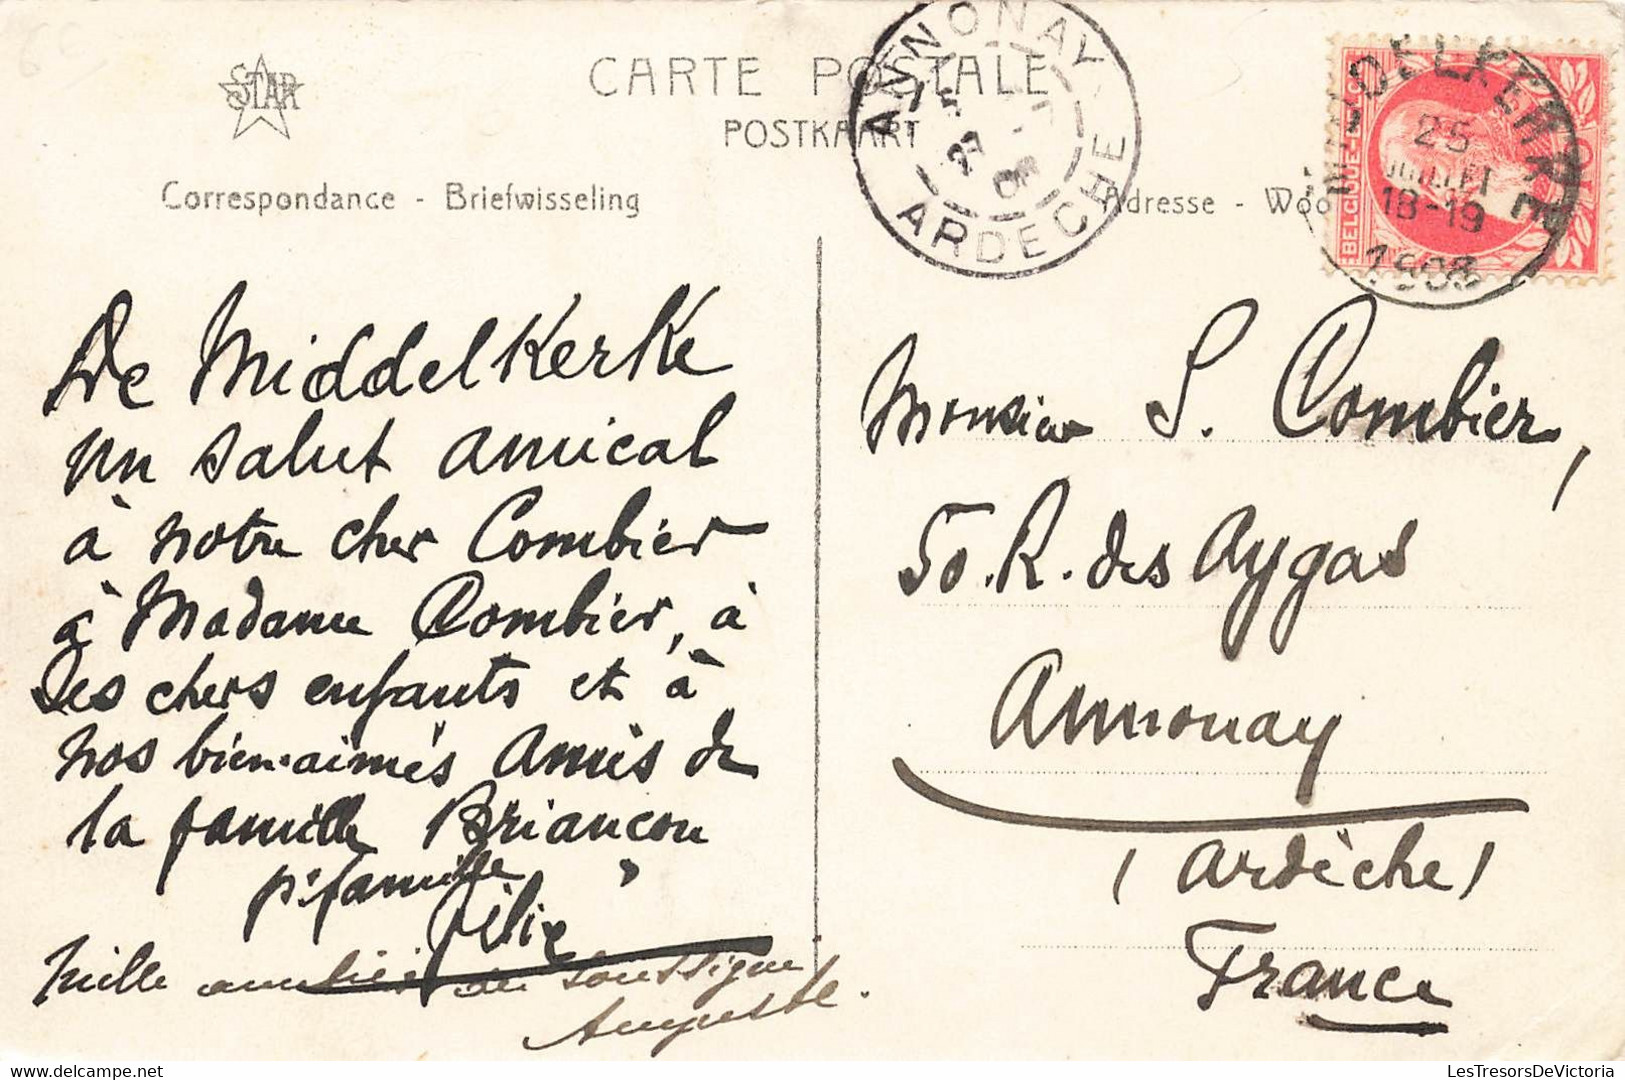 STAR
CARTE POSTALE
POSTKAART
Correspondance - Briefwisseling
Adresse - Woo
ANNONAY
27
ARDECHE
MIDDELKERKE
25
JUILLET
18-19
1908
BELGIQUE
De Middelkerke
un salut amical
à notre cher Combier
à Madame Combier, à
ses chers enfants et à
nos bien-aimés Amis de
la famille Briancon
pr famille "
Félix
Mille amitiés du soussigné
Auguste.
Monsieur S. Combier,
50. R. des Aygas
Annonay
(Ardèche)
France
LesTresorsDeVictoria